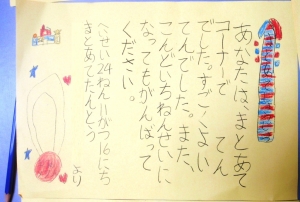 あなたは、まとあて
コーナーで　てん
でした。すごくよい
てんでした。また、
こんどいちねんせいに
なってもがんばって
ください。
へいせい24ねん　がつ16にち
まとあてたんとう
より